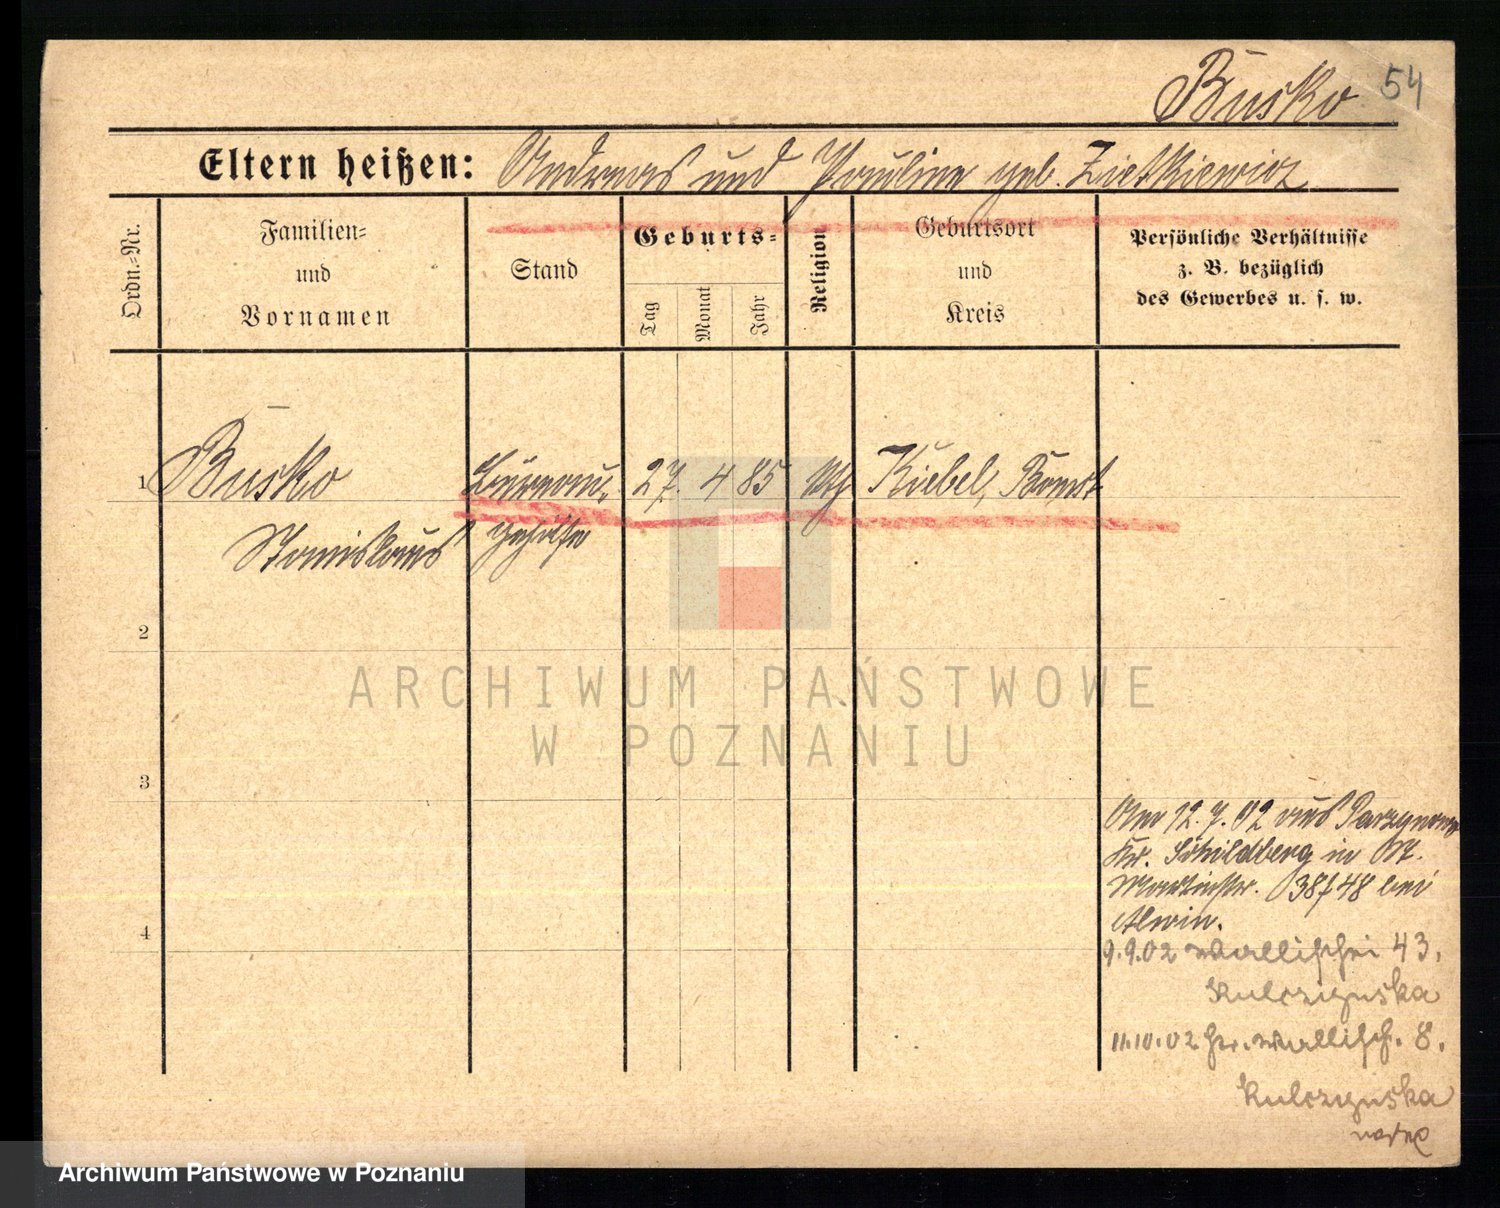 Busko 54
Eltern heißen: Andreas und Pauline geb. Zietkiewicz
Ordn.-Nr.
Familien- und Vornamen
Stand
Geburts-
Tag
Monat
Jahr
Religion
Geburtsort und Kreis
Persönliche Verhältnisse
z. B. bezüglich
des Gewerbes u. s. w.
1 Busko Büreau- 27. 4 85 Kiebel, Bomst
Stanislaus gehilfe
2
3
4
Am 12.7.02 aus Parzynow
Kr. Schildberg in St.
Martinstr. 38/48 bei
9.9.02 Wallischei 43.
Kulczynska
11.10.02 Wallisch. 8.
Kulczynska
ARCHIWUM PAŃSTWOWE
W POZNANIU
Archiwum Państwowe w Poznaniu